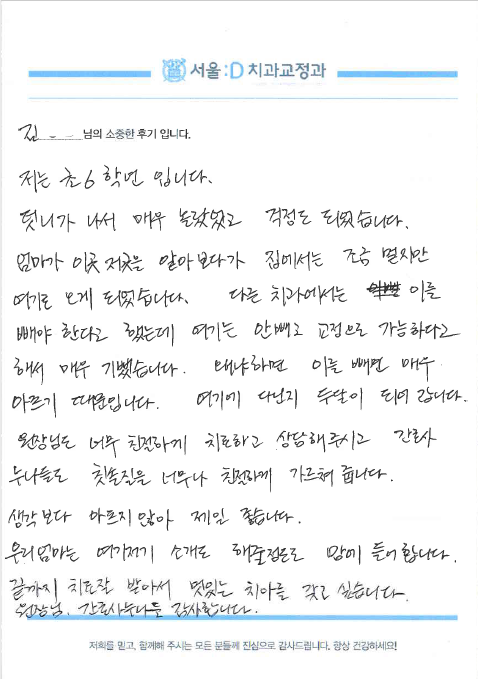 서울:D 치과교정과
김 - - 님의 소중한 후기 입니다.
저는 초6 학년 입니다.
덧니가 나서 매우 놀랐었고 걱정도 되었습니다.
엄마가 이곳 저곳을 알아보다가 집에서는 조금 멀지만
여기로 오게 되었습니다. 다른 치과에서는 이를
빼야 한다고 했는데 여기는 안빼고 교정으로 가능하다고
해서 매우 기뻤습니다. 왜냐하면 이를 빼면 매우
아프기 때문입니다. 여기에 다닌지 두달이 되어 갑니다.
원장님도 너무 친절하게 치료하고 상담해주시고 간호사
누나들도 칫솔질을 너무나 친절하게 가르쳐 줍니다.
생각보다 아프지 않아 제일 좋습니다.
우리엄마는 여기저기 소개도 해줄정도로 맘에 들어합니다.
끝까지 치료잘 받아서 멋있는 치아를 갖고 싶습니다.
원장님, 간호사누나들 감사합니다.
저희를 믿고, 함께해 주시는 모든 분들께 진심으로 감사드립니다. 항상 건강하세요!